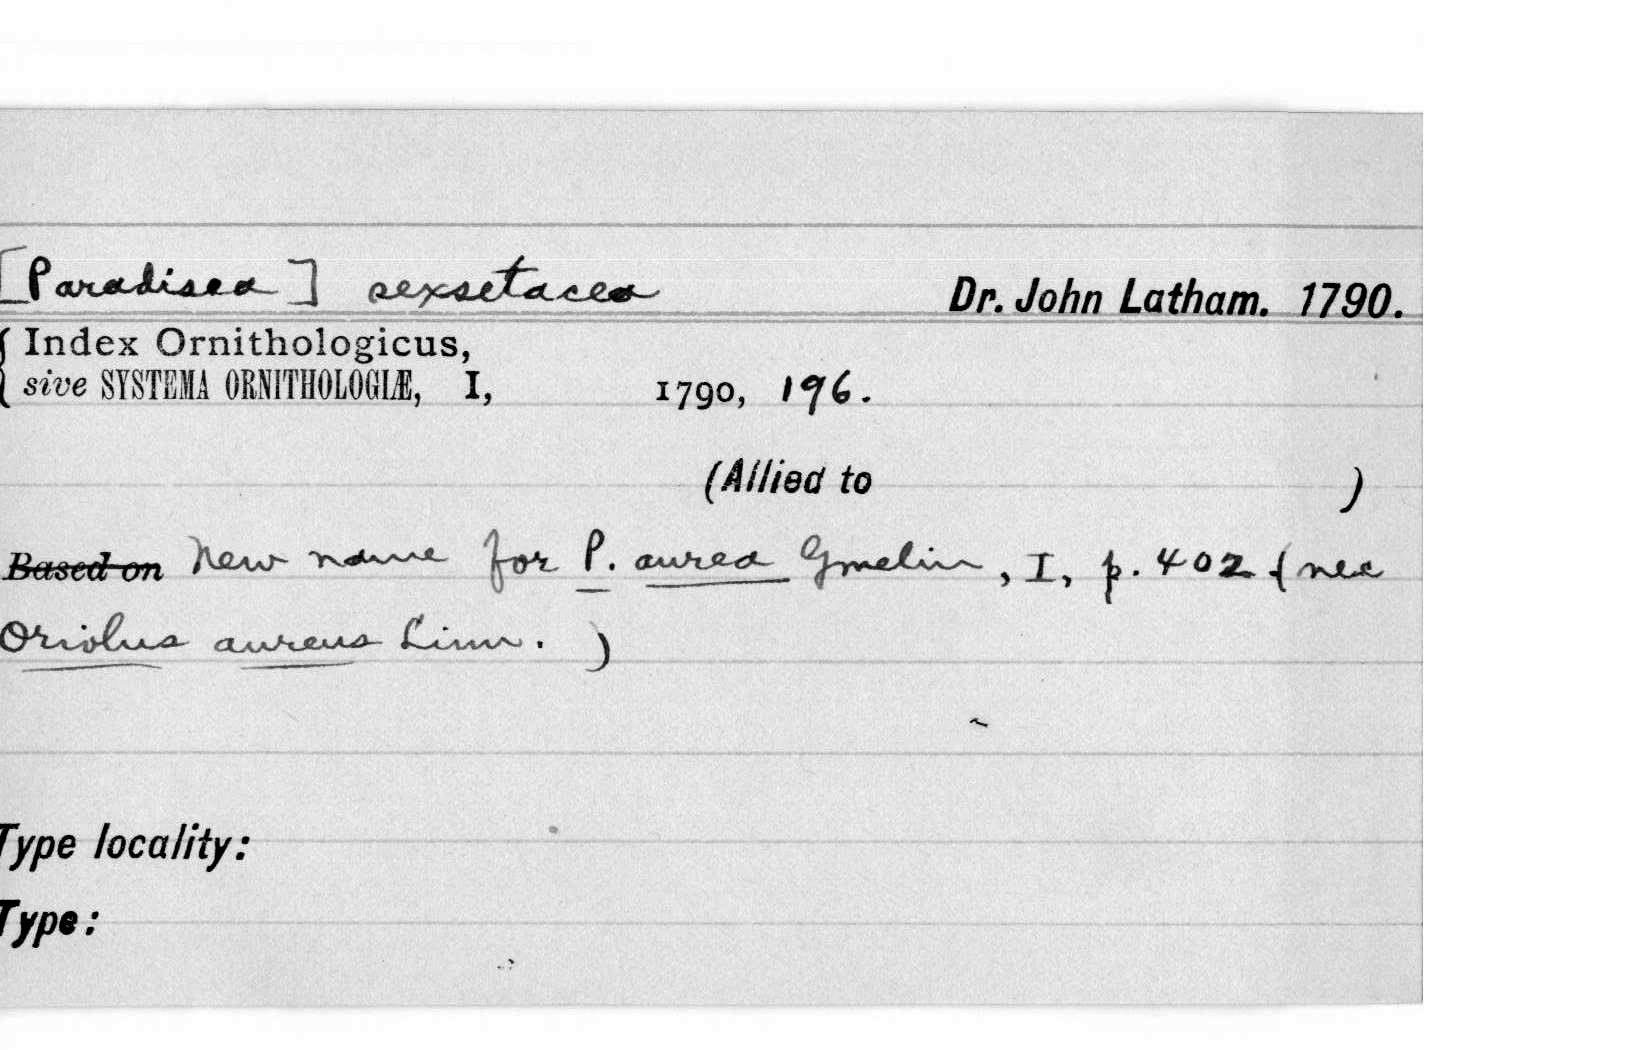 [Paradisea] sexsetacea Dr. John Latham. 1790.
Index Ornithologicus,
sive SYSTEMA ORNITHOLOGIÆ, I, 1790, 196.
(Allied to )
Based on New name for P. aurea Gmelin, I, p. 402 (nec
Oriolus aureus Linn. )
Type locality:
Type: